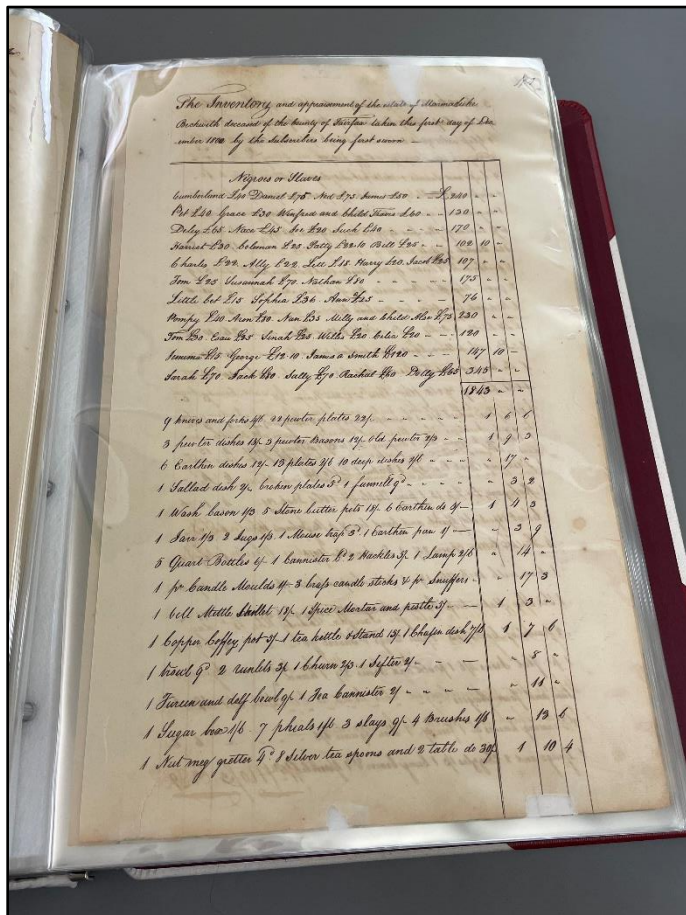 The Inventory and appraisement of the estate of Marmaduke
Beckwith deceased of the County of Fairfax taken this first day of Dec
ember 1800 by the Subscribers being first sworn —
Negroes or Slaves
Cumberland £40 Daniel £75 Ned £75 James £50 - £ 240 " "
Pet £40 Grace £30 Winfred and Child Travis £60 - - 130 " "
Delcy £65 Nace £45 Joe £20 Suck £40 - - - 170 " "
Harriet £30 Coleman £25 Patty £22.10 Bill £25 - - 102 10 -
Charles £22 Ally £22 Lell £18 Harry £20 Jacob £25 107 " "
Tom £25 Susannah £70 Nathan £80 - - - 175 " "
Little bet £15 Sophia £36 Han £25 - - - 76 " "
Pompy £40 Aron £80 Nan £35 Milly and Child Alse £75 230 " "
Tom £30 Esau £25 Sinah £25 Willis £20 Celia £20 - - 120 " "
Jemima £15 George £12.10 James a Smith £120 - - - 147 10 -
Sarah £70 Jack £80 Sally £70 Rachel £60 Dolly £65 345 " "
1843 " "
9 knives and forks 4/6 22 pewter plates 22/. - - - - 1 6 6
3 pewter dishes 15/. 3 pewter Basons 12/. Old pewter 2/3 - - 1 9 3
6 Earthen dishes 12/. 13 plates 2/6 10 deep dishes 2/6 - - " 17 "
1 Sallad dish 2/. broken plates 5d 1 funnell 9d - - - " 3 2
1 Wash bason 1/3 5 Stone butter pots 15/. 6 Earthen do 3/- 1 4 3
1 Jarr 1/3 2 Jugs 1/3 1 Mouse trap 3d 1 Earthen pan 1/- - " 3 9
5 Quart Bottles 6/- 1 bannister 2 Hackles 3/. 1 Lamp 2/6 " 14 "
1 pr Candle Moulds 3 brass candle sticks & pr Snuffers - " 17 3
1 bell Mettle Skillet 15/. 1 Spice Mortar and pestle 3/ — 1 3 "
1 Copper Coffey pot 3/- 1 tea kettle & Stand 15/. 1 Chafin dish 7/6 1 7 6
1 bowl 9d 2 runlets 3/. 1 Churn 2/3 1 Sifter 2/- - - " 8 "
1 Tureen and delf bowl 9/- 1 Tea bannister 2/ - - - - " 11 "
1 Sugar box 1/6 7 phials 1/6 3 slays 9/- 4 Brushes 1/6 " 13 6
1 Nut meg gretter 4d 8 Silver tea spoons and 2 table do 30/- 1 10 4